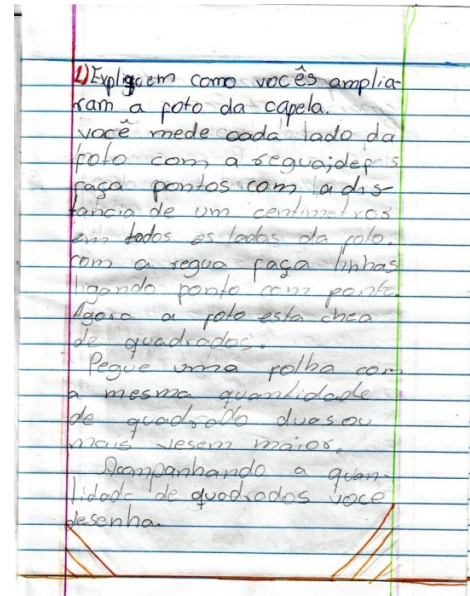 1) Expliquem como vocês amplia-
ram a foto da capela.
você mede cada lado da
foto com a regua; depois
faça pontos com a dis-
tancia de um centimetros
em todos os lados da foto.
com a regua faça linhas
ligando ponto com ponto.
Agora a foto esta chea
de quadrados.
Pegue uma folha com
a mesma quantidade
de quadrado duas ou
mais vesem maior.
Acompanhando a quan-
tidade de quadrados voce
desenha.